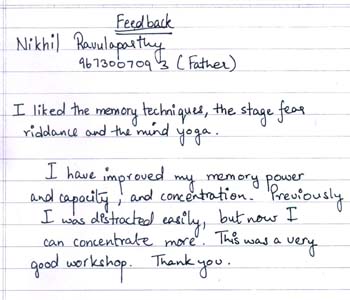 Feedback
Nikhil Ravulaparthy
9673007093 (Father)
I liked the memory techniques, the stage fear
riddance and the mind yoga.
I have improved my memory power
and capacity, and concentration. Previously
I was distracted easily, but now I
can concentrate more. This was a very
good workshop. Thank you.